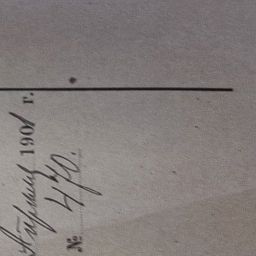 Апреля 1901 г.
№ 470.